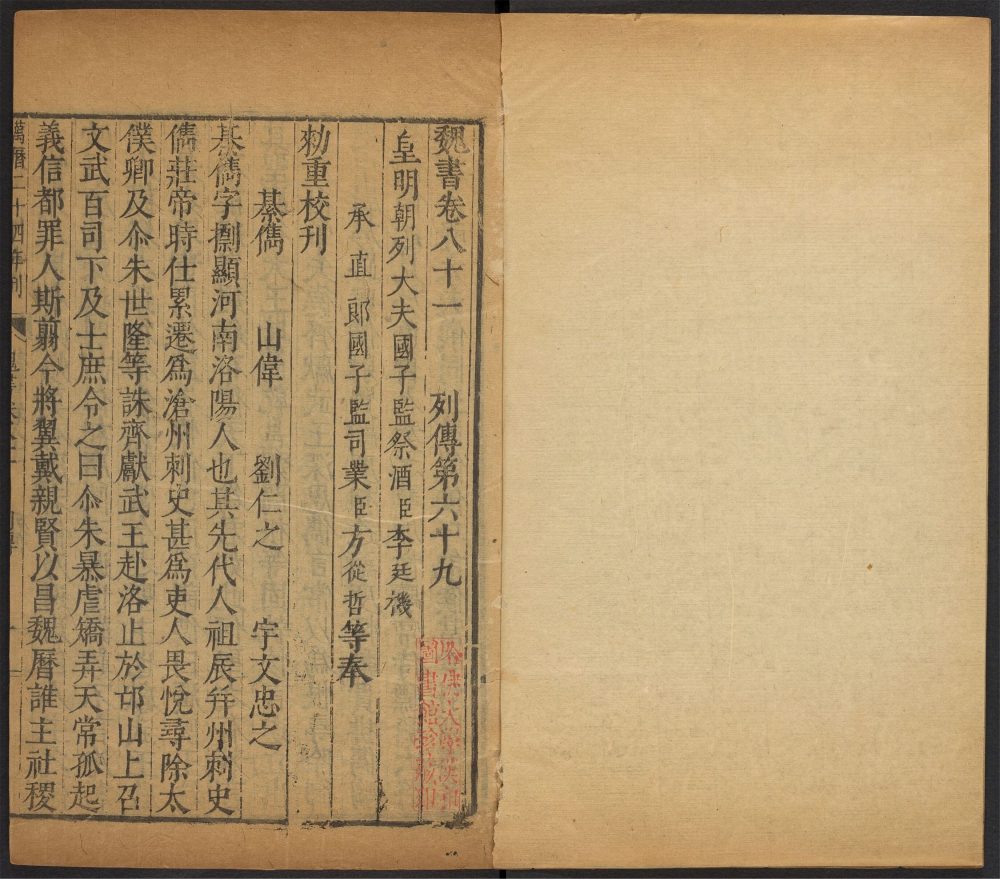 魏書卷八十一　列傳第六十九
皇明朝列大夫國子監祭酒臣李廷機
承直郎國子監司業臣方從哲等奉
勑重校刊
綦儁　山偉　劉仁之　宇文忠之
綦儁字㩲顯河南洛陽人也其先代人祖辰并州刺史
儁莊帝時仕累遷爲滄州刺史甚爲吏人畏悅尋除太
僕卿及尒朱世隆等誅齊獻武王赴洛止於邙山上召
文武百司下及士庶令之曰尒朱暴虐矯弄天常孤起
義信都罪人斯翦今將翼戴親賢以昌魏曆誰主社稷
萬曆二十四年刊
哈佛大學漢和
圖書館珍藏印